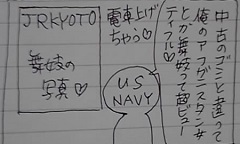 中古のゴミと違って
俺のアフガニスタン女
とか舞妓って超ビュー
ティフル♡
電車上げ
ちゃう♡
JRKYOTO
舞妓の
写真♡
US
NAVY